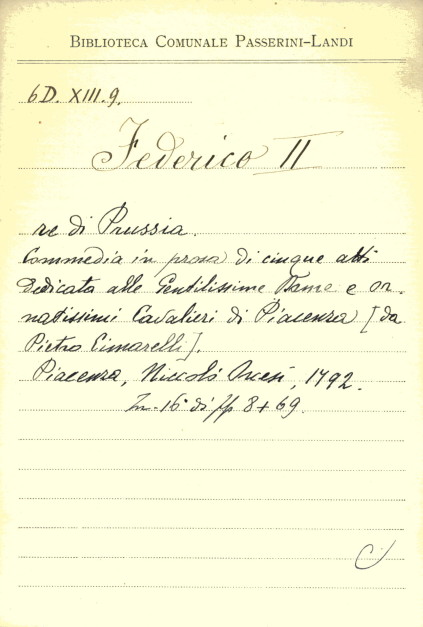 BIBLIOTECA COMUNALE PASSERINI-LANDI
6D. XIII.9.
Federico II
re di Prussia.
Commedia in prosa di cinque atti
dedicata alle Gentilissime Dame e or-
natissimi Cavalieri di Piacenza [da
Pietro Cimarelli].
Piacenza, Niccolò Orcesi, 1792.
In-16° di pp 8+69.